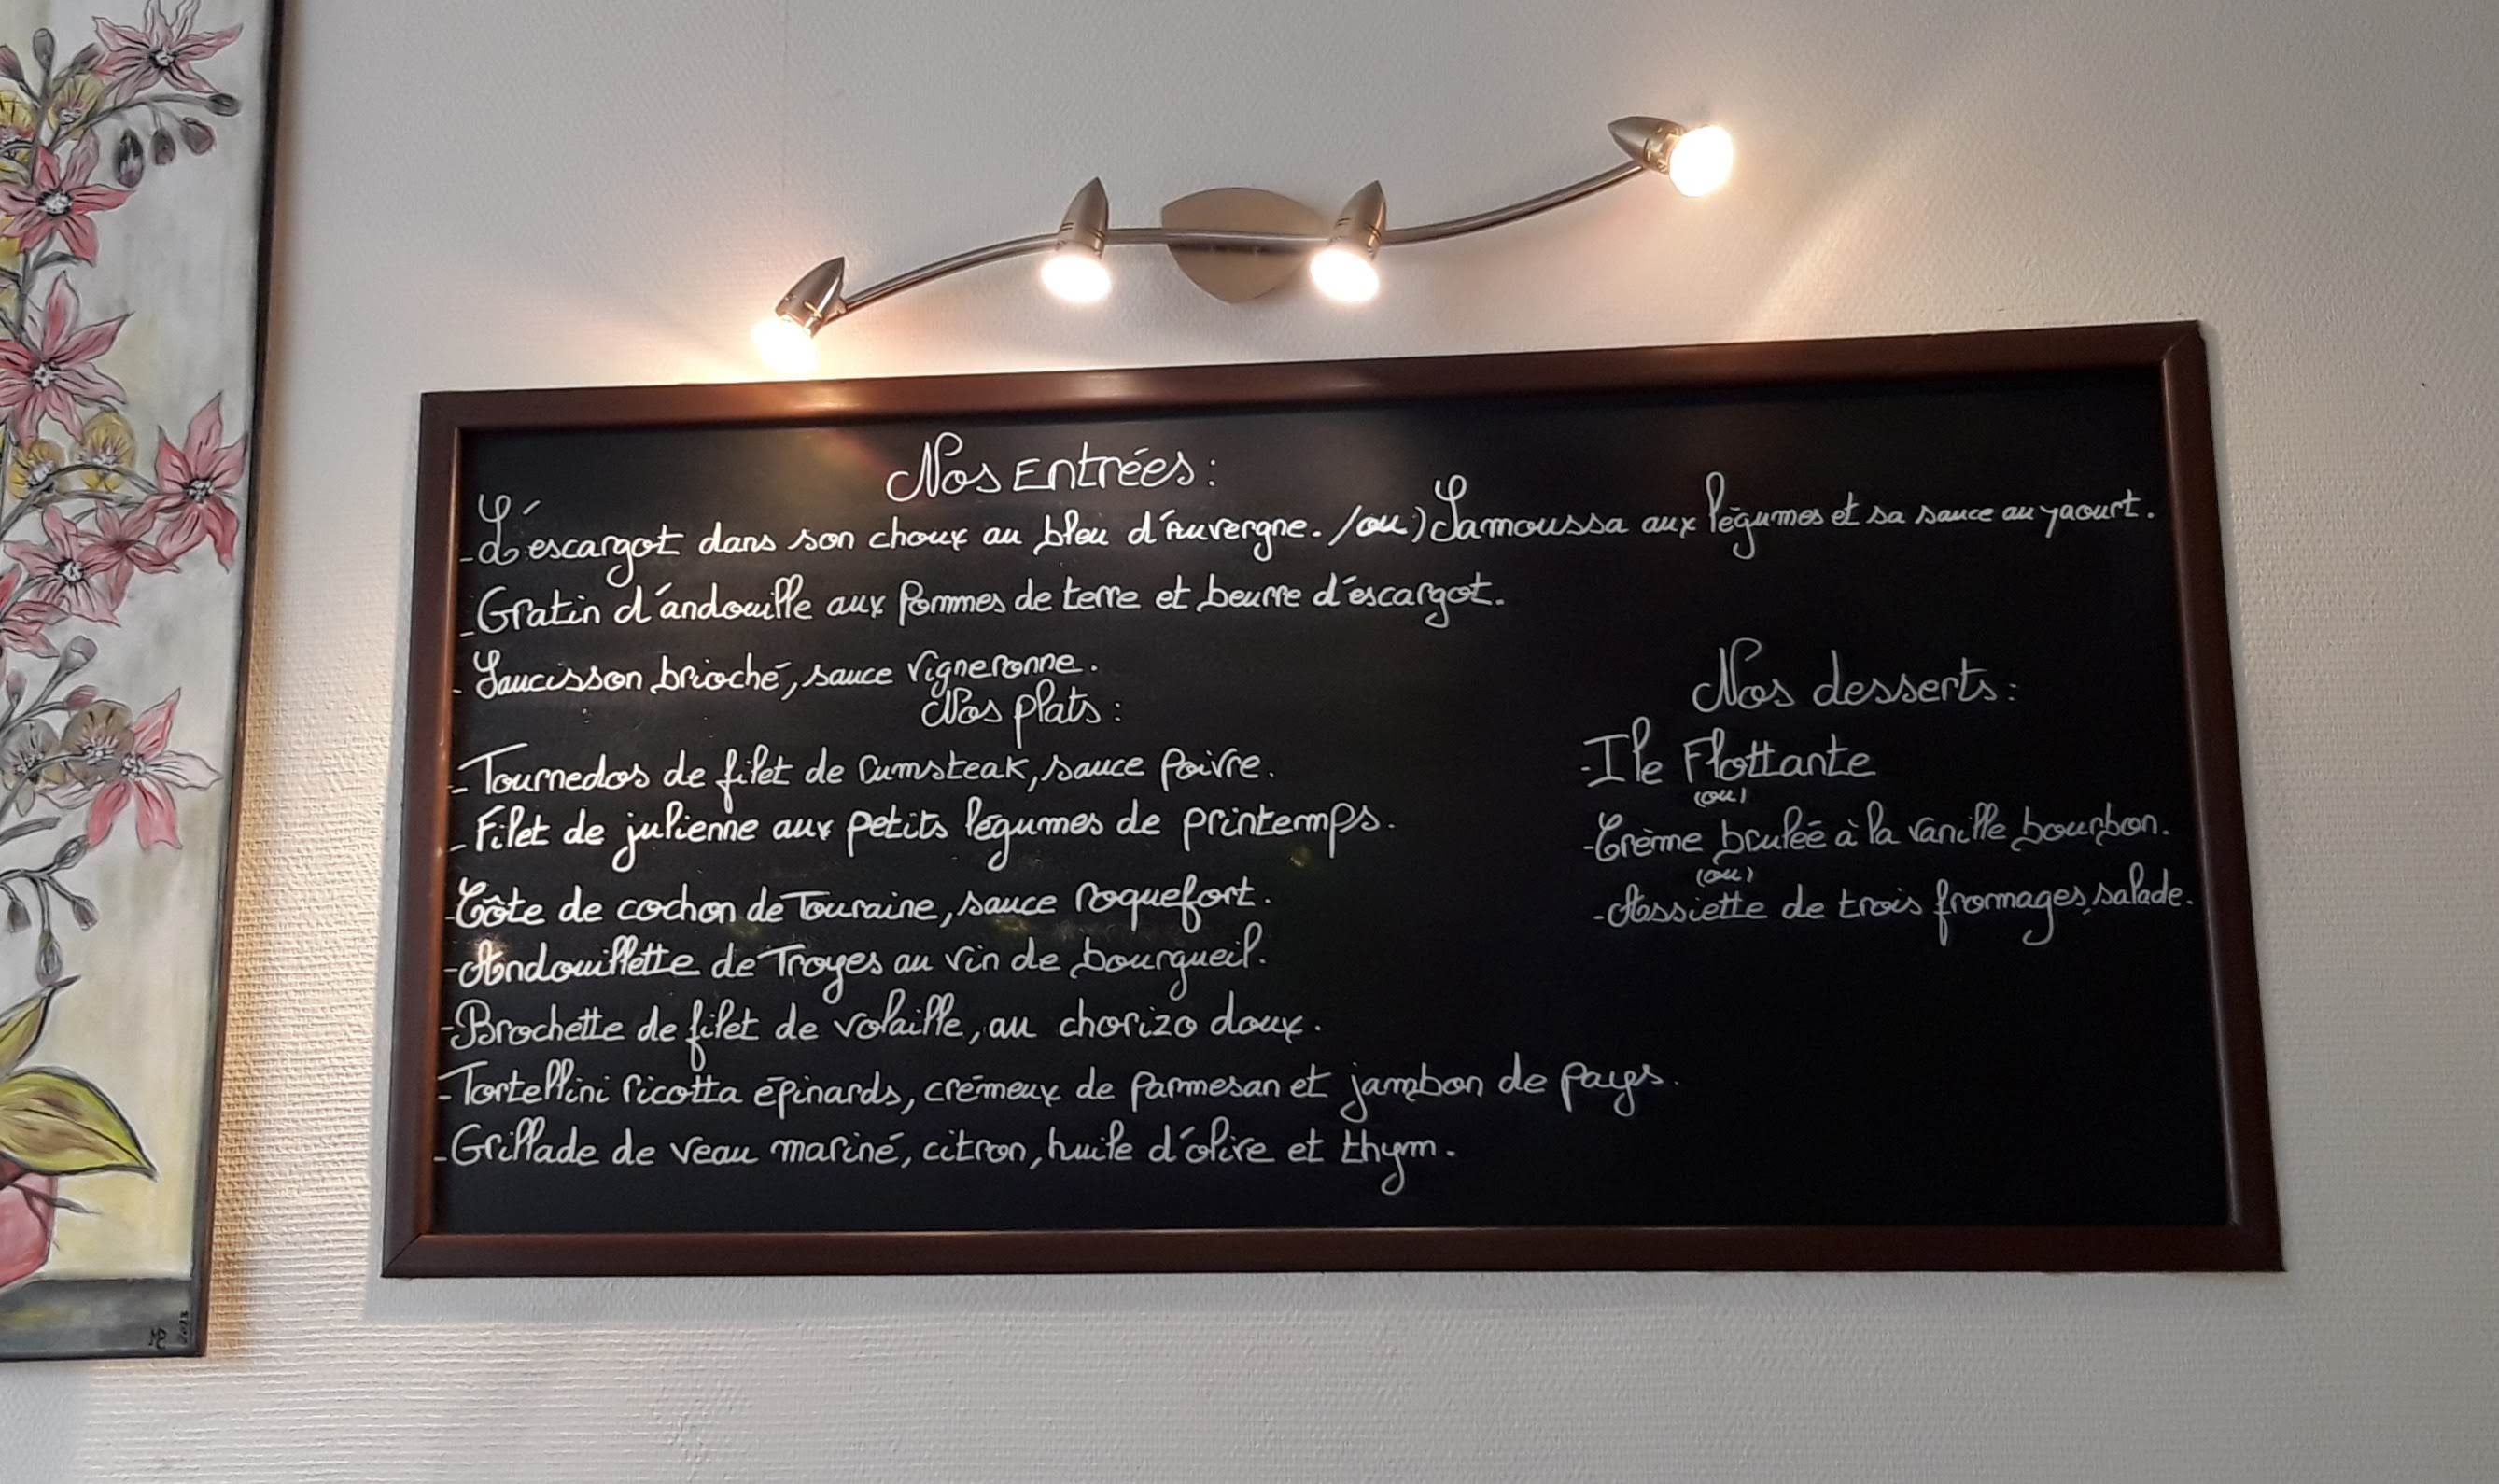 Nos Entrées:
- L'escargot dans son choux au bleu d'Auvergne. /ou) Samoussa aux légumes et sa sauce au yaourt.
- Gratin d'andouille aux pommes de terre et beurre d'escargot.
- Saucisson brioché, sauce vigneronne.
Nos plats:
- Tournedos de filet de rumsteak, sauce poivre.
- Filet de julienne aux petits légumes de printemps.
- Côte de cochon de Touraine, sauce roquefort.
- Andouillette de Troyes au vin de bourgueil.
- Brochette de filet de volaille, au chorizo doux.
- Tortellini ricotta épinards, crémeux de parmesan et jambon de pays.
- Grillade de veau mariné, citron, huile d'olive et thym.
Nos desserts:
- Ile Flottante
(ou)
- Crème brulée à la vanille bourbon.
(ou)
- Assiette de trois fromages, salade.